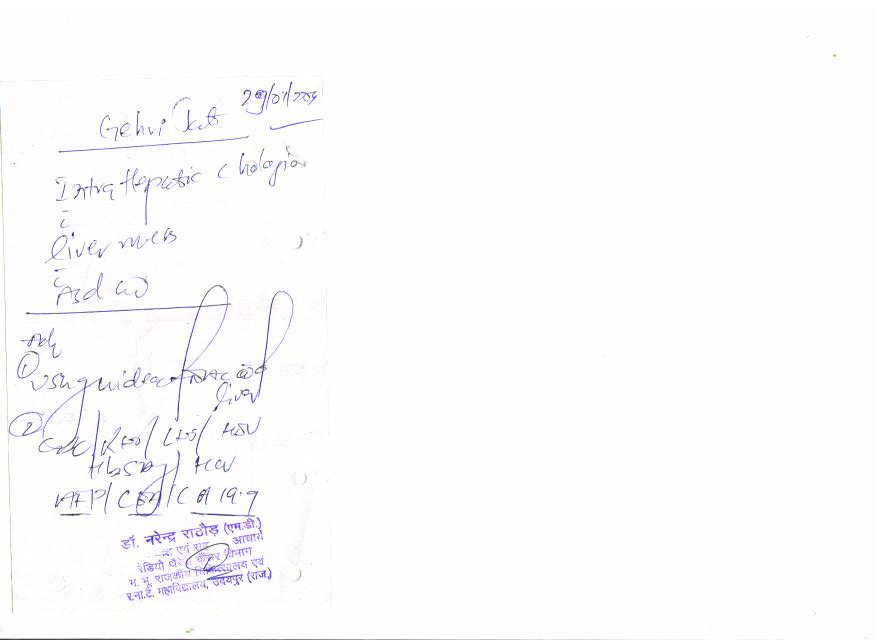 29/01/
Gehri
Intra Hepatic Cholangio
c̄
liver mets
c̄
Adv
①
USG guided FNAC
liver
②
CBC/RFT/LFT/HIV
HbsAg/HCV
AFP/CEA/CA 19.9
डॉ. नरेन्द्र राठौड़ (एम.डी.)
एवं सह आचार्य
रेडियो थैरेपी कैंसर विभाग
म. भू. राजकीय चिकित्सालय एवं
र.ना.टै. महाविद्यालय, उदयपुर (राज.)